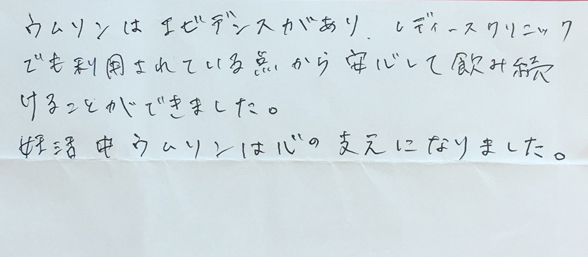 ウムリンはエビデンスがあり、レディースクリニック
でも利用されている点から安心して飲み続
けることができました。
妊活中ウムリンは心の支えになりました。